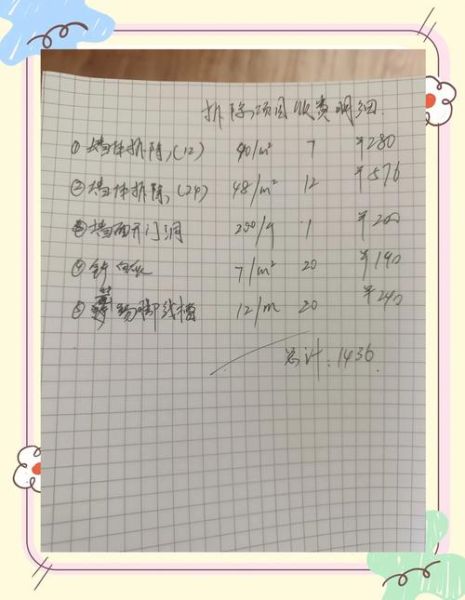 拆除项目收费明细
①墙体拆除(12) 40/m² 7 ¥280
②墙体拆除(24) 48/m² 12 ¥576
③墙面开门洞 200/个 1 ¥200
④ 7/m² 20 ¥140
⑤ 踢脚线槽 12/m 20 ¥240
总计:1436